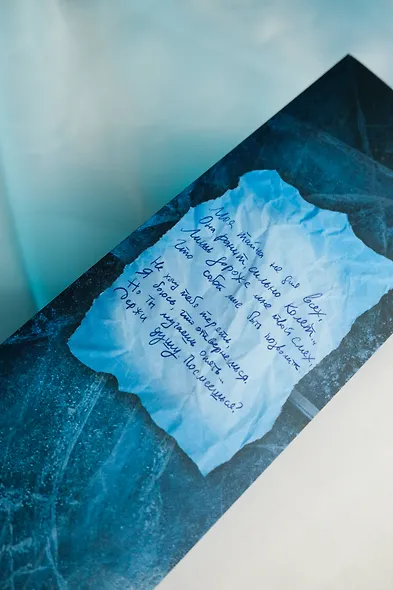 Моя тайна не для всех,
Она ранит, сильно колет..
Лишь дороже мне твой смех,
Что собой мне быть позволит
Не хочу тебя терять,
Я боюсь, что отвернёшься.
Но ты, мучаешь опять..
Держи душу посмеёшься?